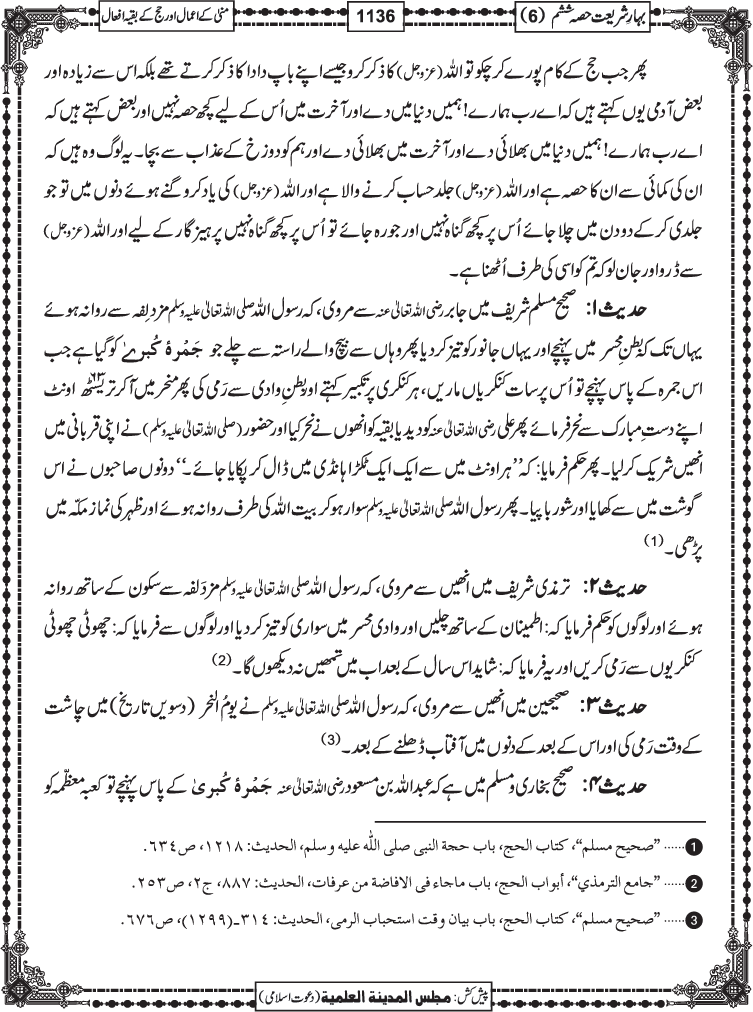 بہار شریعت حصہ ششم (6)
1136
منیٰ کے اعمال اور حج کے بقیہ افعال
پھر جب حج کے کام پورے کر چکو تو اللہ (عزوجل) کا ذکر کرو جیسے اپنے باپ دادا کا ذکر کرتے تھے بلکہ اس سے زیادہ اور
بعض آدمی یوں کہتے ہیں کہ اے رب ہمارے! ہمیں دنیا میں دے اور آخرت میں اُس کے لیے کچھ حصہ نہیں اور بعض کہتے ہیں کہ
اے رب ہمارے! ہمیں دنیا میں بھلائی دے اور آخرت میں بھلائی دے اور ہم کو دوزخ کے عذاب سے بچا۔ یہ لوگ وہ ہیں کہ
ان کی کمائی سے ان کا حصہ ہے اور اللہ (عزوجل) جلد حساب کرنے والا ہے اور اللہ (عزوجل) کی یاد کرو گنے ہوئے دنوں میں تو جو
جلدی کر کے دو دن میں چلا جائے اُس پر کچھ گناہ نہیں اور جو رہ جائے تو اُس پر کچھ گناہ نہیں پرہیز گار کے لیے اور اللہ (عزوجل)
سے ڈرو اور جان لو کہ تم کو اسی کی طرف اُٹھنا ہے۔
حدیث ۱: صحیح مسلم شریف میں جابر رضی اللہ تعالیٰ عنہ سے مروی، کہ رسول اللہ صلی اللہ تعالیٰ علیہ وسلم مزدلِفہ سے روانہ ہوئے
یہاں تک کہ بطنِ محسر میں پہنچے اور یہاں جانور کو تیز کر دیا پھر وہاں سے بیچ والے راستہ سے چلے جو جَمْرۂ کُبریٰ کو گیا ہے جب
اس جمرہ کے پاس پہنچے تو اُس پر سات کنکریاں ماریں، ہر کنکری پر تکبیر کہتے اور بطنِ وادی سے رَمی کی پھر منحر میں آکر تریسٹھ ۶۳ اونٹ
اپنے دستِ مبارک سے نحر فرمائے پھر علی رضی اللہ تعالیٰ عنہ کو دیدیا بقیہ کو انھوں نے نحر کیا اور حضور (صلی اللہ تعالیٰ علیہ وسلم) نے اپنی قربانی میں
انھیں شریک کر لیا۔ پھر حکم فرمایا: کہ ’’ہر اونٹ میں سے ایک ایک ٹکڑا ہانڈی میں ڈال کر پکایا جائے۔‘‘ دونوں صاحبوں نے اس
گوشت میں سے کھایا اور شوربا پیا۔ پھر رسول اللہ صلی اللہ تعالیٰ علیہ وسلم سوار ہو کر بیت اللہ کی طرف روانہ ہوئے اور ظہر کی نماز مکّہ میں
پڑھی۔ (1)
حدیث ۲: ترمذی شریف میں انھیں سے مروی، کہ رسول اللہ صلی اللہ تعالیٰ علیہ وسلم مزدَلفہ سے سکون کے ساتھ روانہ
ہوئے اور لوگوں کو حکم فرمایا کہ: اطمینان کے ساتھ چلیں اور وادی محسر میں سواری کو تیز کر دیا اور لوگوں سے فرمایا کہ: چھوٹی چھوٹی
کنکریوں سے رَمی کریں اور یہ فرمایا کہ: شاید اس سال کے بعد اب میں تمھیں نہ دیکھوں گا۔ (2)
حدیث ۳: صحیحین میں انھیں سے مروی، کہ رسول اللہ صلی اللہ تعالیٰ علیہ وسلم نے یومُ النحر (دسویں تاریخ) میں چاشت
کے وقت رَمی کی اور اس کے بعد کے دنوں میں آفتاب ڈھلنے کے بعد۔ (3)
حدیث ۴: صحیح بخاری و مسلم میں ہے کہ عبد اللہ بن مسعود رضی اللہ تعالیٰ عنہ جَمْرۂ کُبریٰ کے پاس پہنچے تو کعبہ معظّمہ کو
1 ...... ”صحیح مسلم“، کتاب الحج، باب حجۃ النبی صلی اللّٰہ علیہ وسلم، الحدیث: ۱۲۱۸، ص۶۳۴.
2 ...... ”جامع الترمذي“، أبواب الحج، باب ماجاء فی الافاضۃ من عرفات، الحدیث: ۸۸۷، ج۲، ص۲۵۳.
3 ...... ”صحیح مسلم“، کتاب الحج، باب بیان وقت استحباب الرمی، الحدیث: ۳۱۴ـ(۱۲۹۹)، ص۶۷۶.
پیش کش: مجلس المدينة العلمية (دعوت اسلامی)